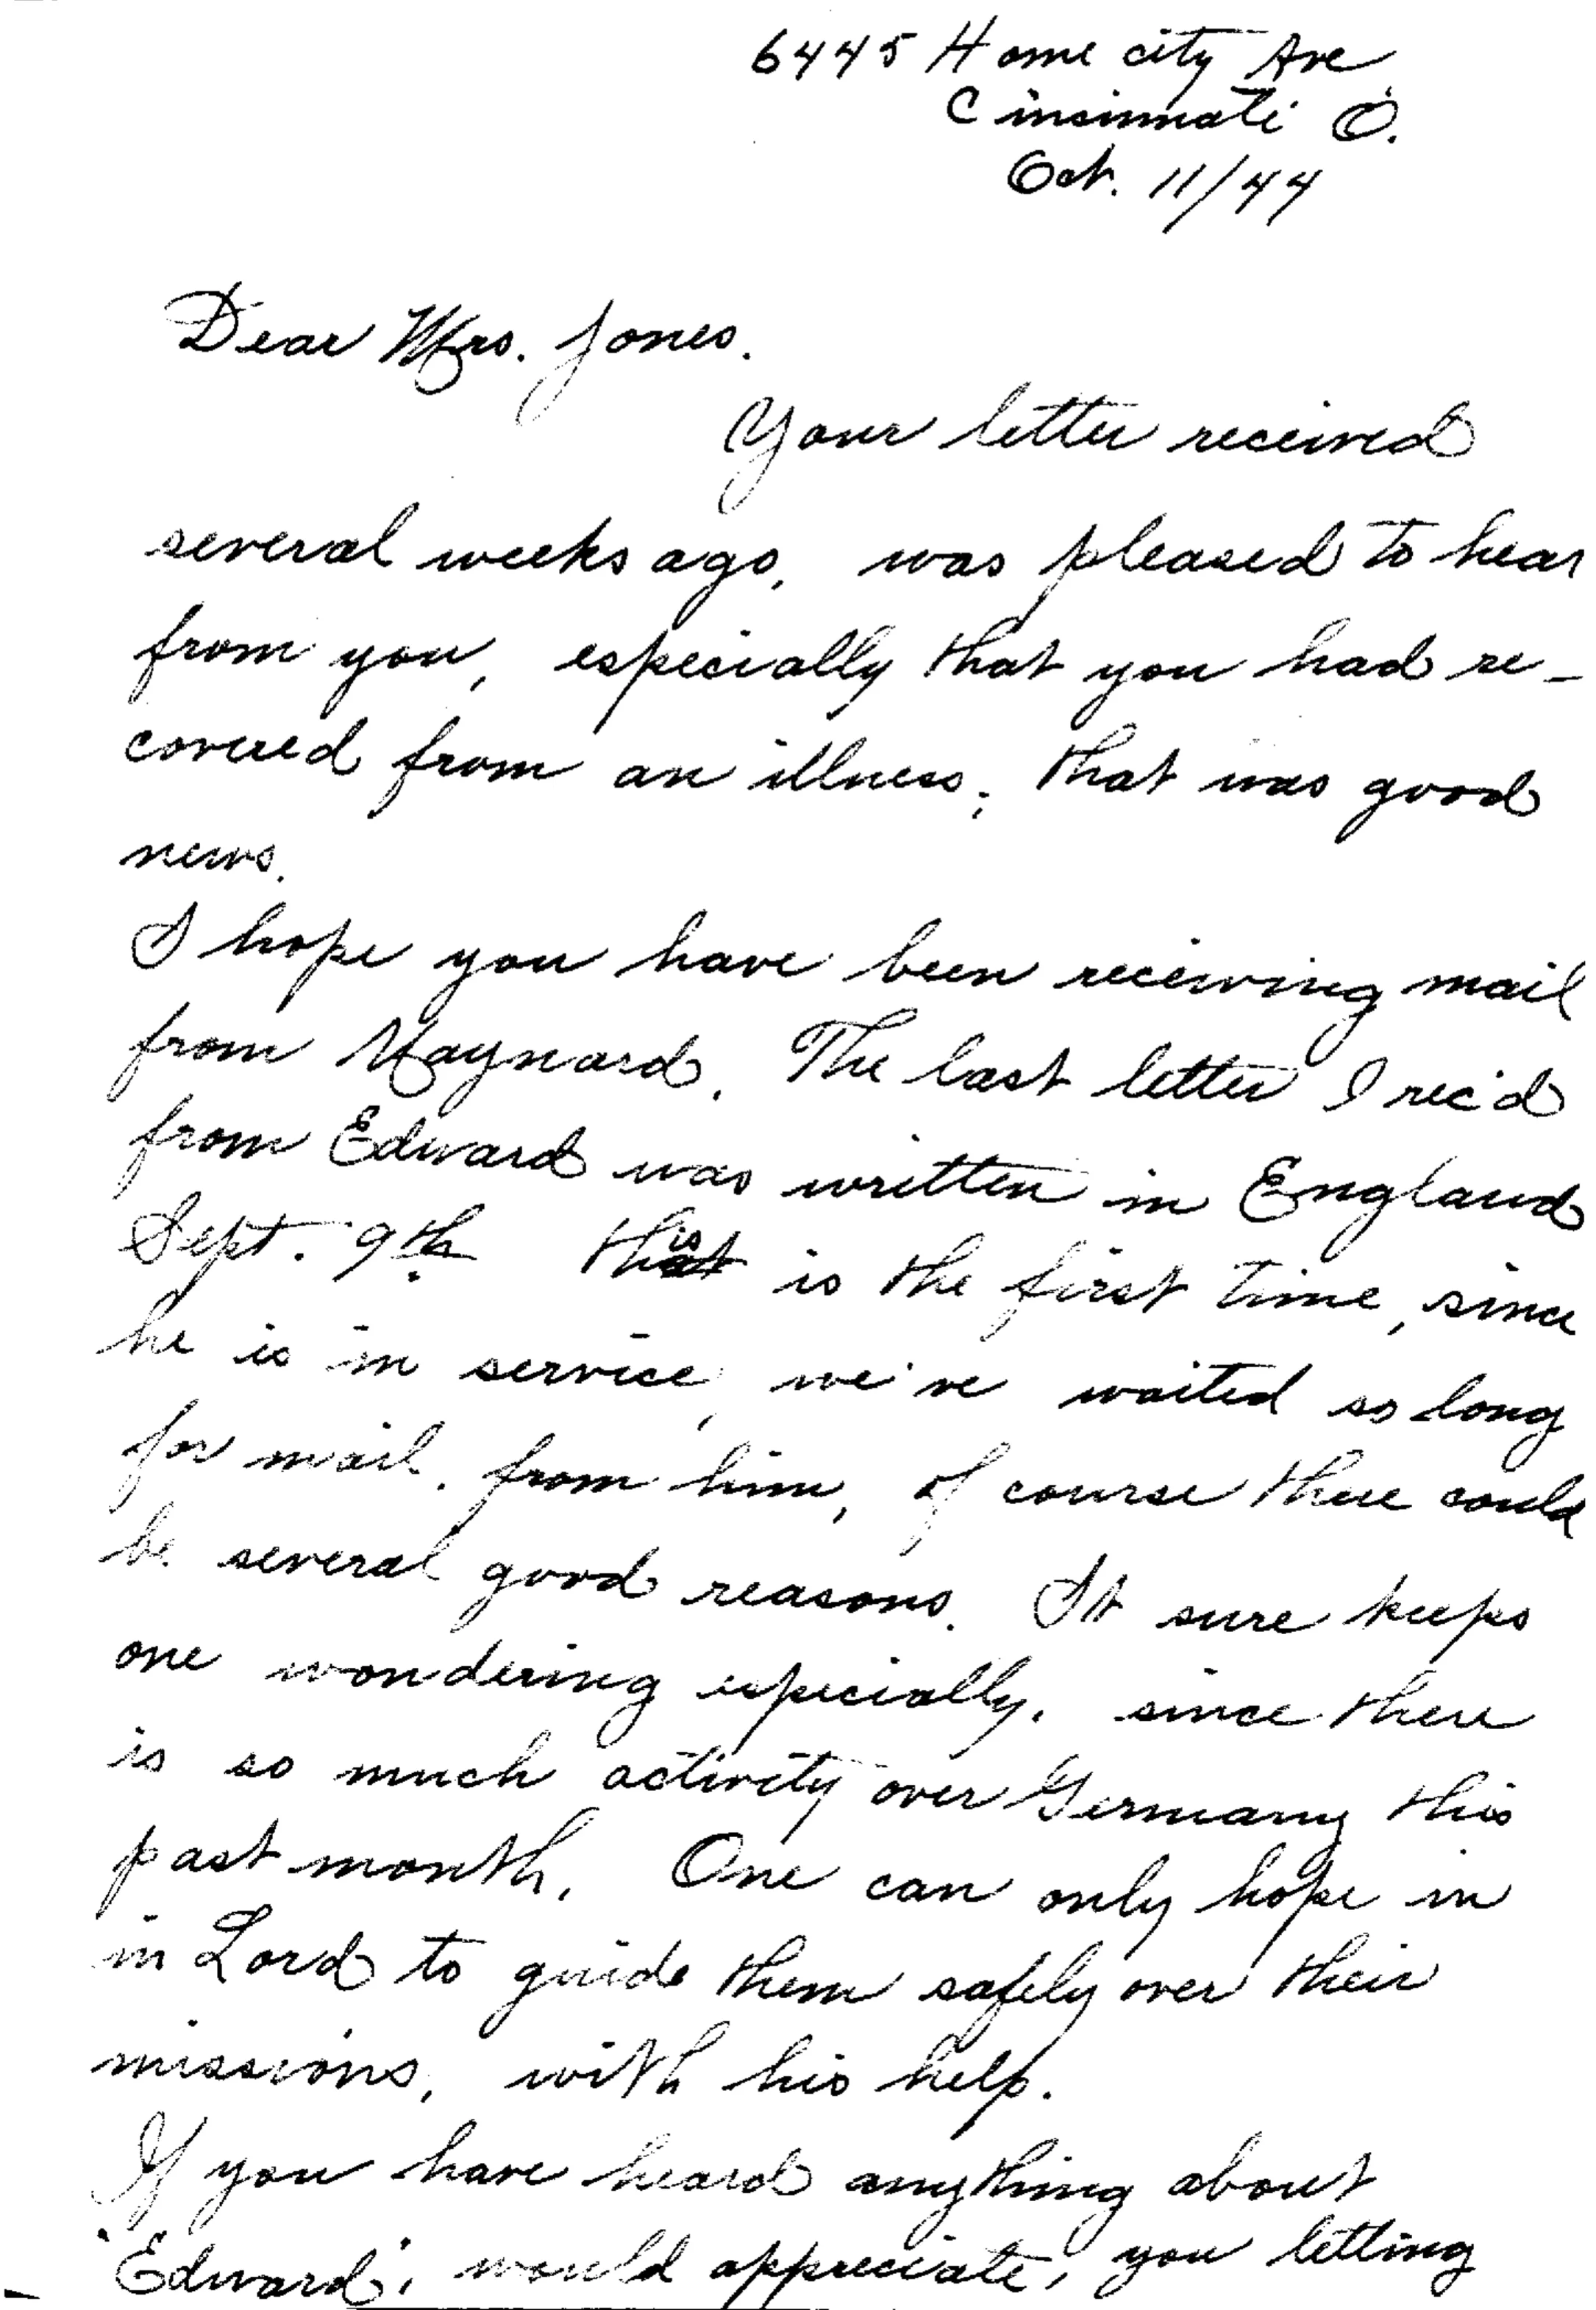 6445 Home city Ave
Cinsinnati O.
Oct. 11/44
Dear Mrs. Jones.
Your letter received
several weeks ago, was pleased to hear
from you, especially that you had re-
covered from an illness; that was good
news.
I hope you have been receiving mail
from Maynard. The last letter I rec'd
from Edward was written in England
Sept. 9th this is the first time, since
he is in service, we've waited so long
for mail. from him, of course there could
be several good reasons. It sure keeps
one wondering especially, since there
is so much activity over Germany this
past month. One can only hope in
in Lord to guide them safely over their
missions, with his help.
If you have heard anything about
'Edward', would appreciate, you letting